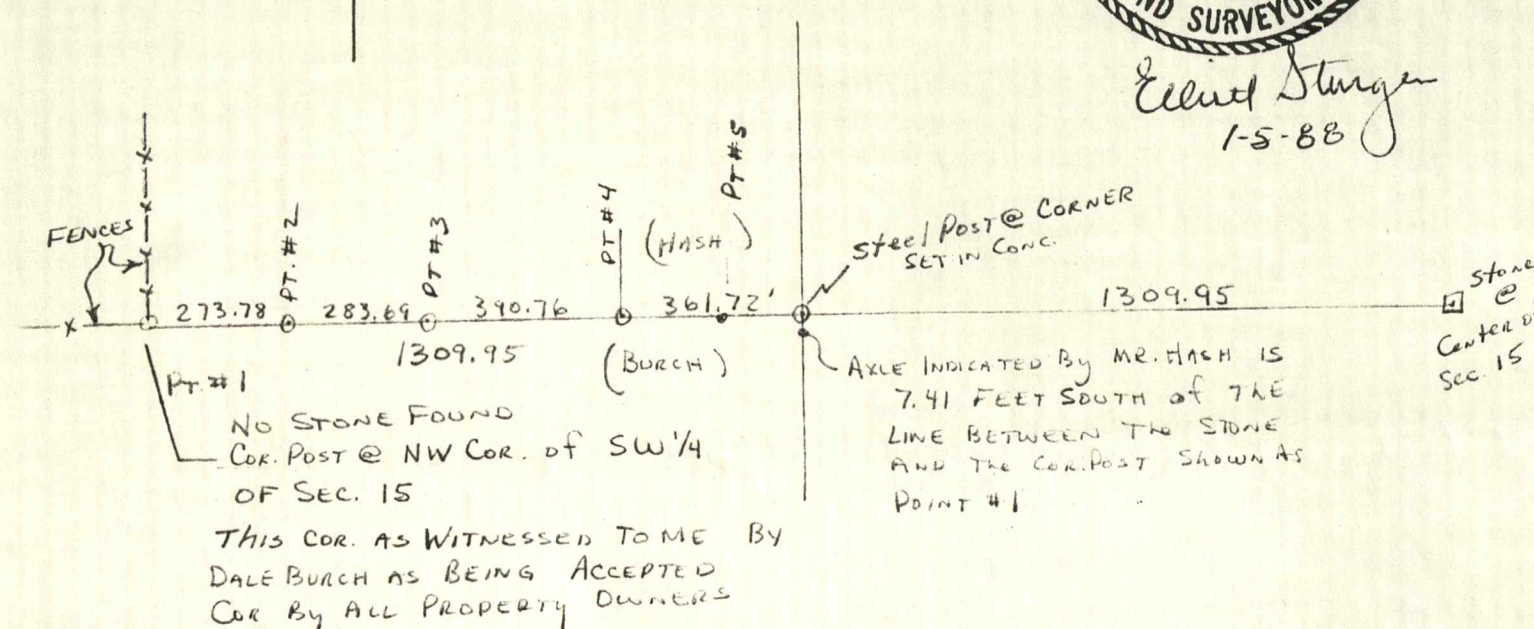 ND SURVEYOR
1-5-88
PT #5
PT #4
(HASH)
STEEL POST @ CORNER
SET IN CONC.
FENCES
PT. #2
PT #3
273.78
283.69
390.76
361.72'
1309.95
STONE
@
CENTER O
SEC. 15
1309.95
(BURCH)
PT. #1
NO STONE FOUND
COR. POST @ NW COR. of SW 1/4
OF SEC. 15
THIS COR. AS WITNESSED TO ME BY
DALE BURCH AS BEING ACCEPTED
COR BY ALL PROPERTY OWNERS
AXLE INDICATED By MR. HASH IS
7.41 FEET SOUTH of THE
LINE BETWEEN THE STONE
AND THE COR. POST SHOWN AS
POINT #1